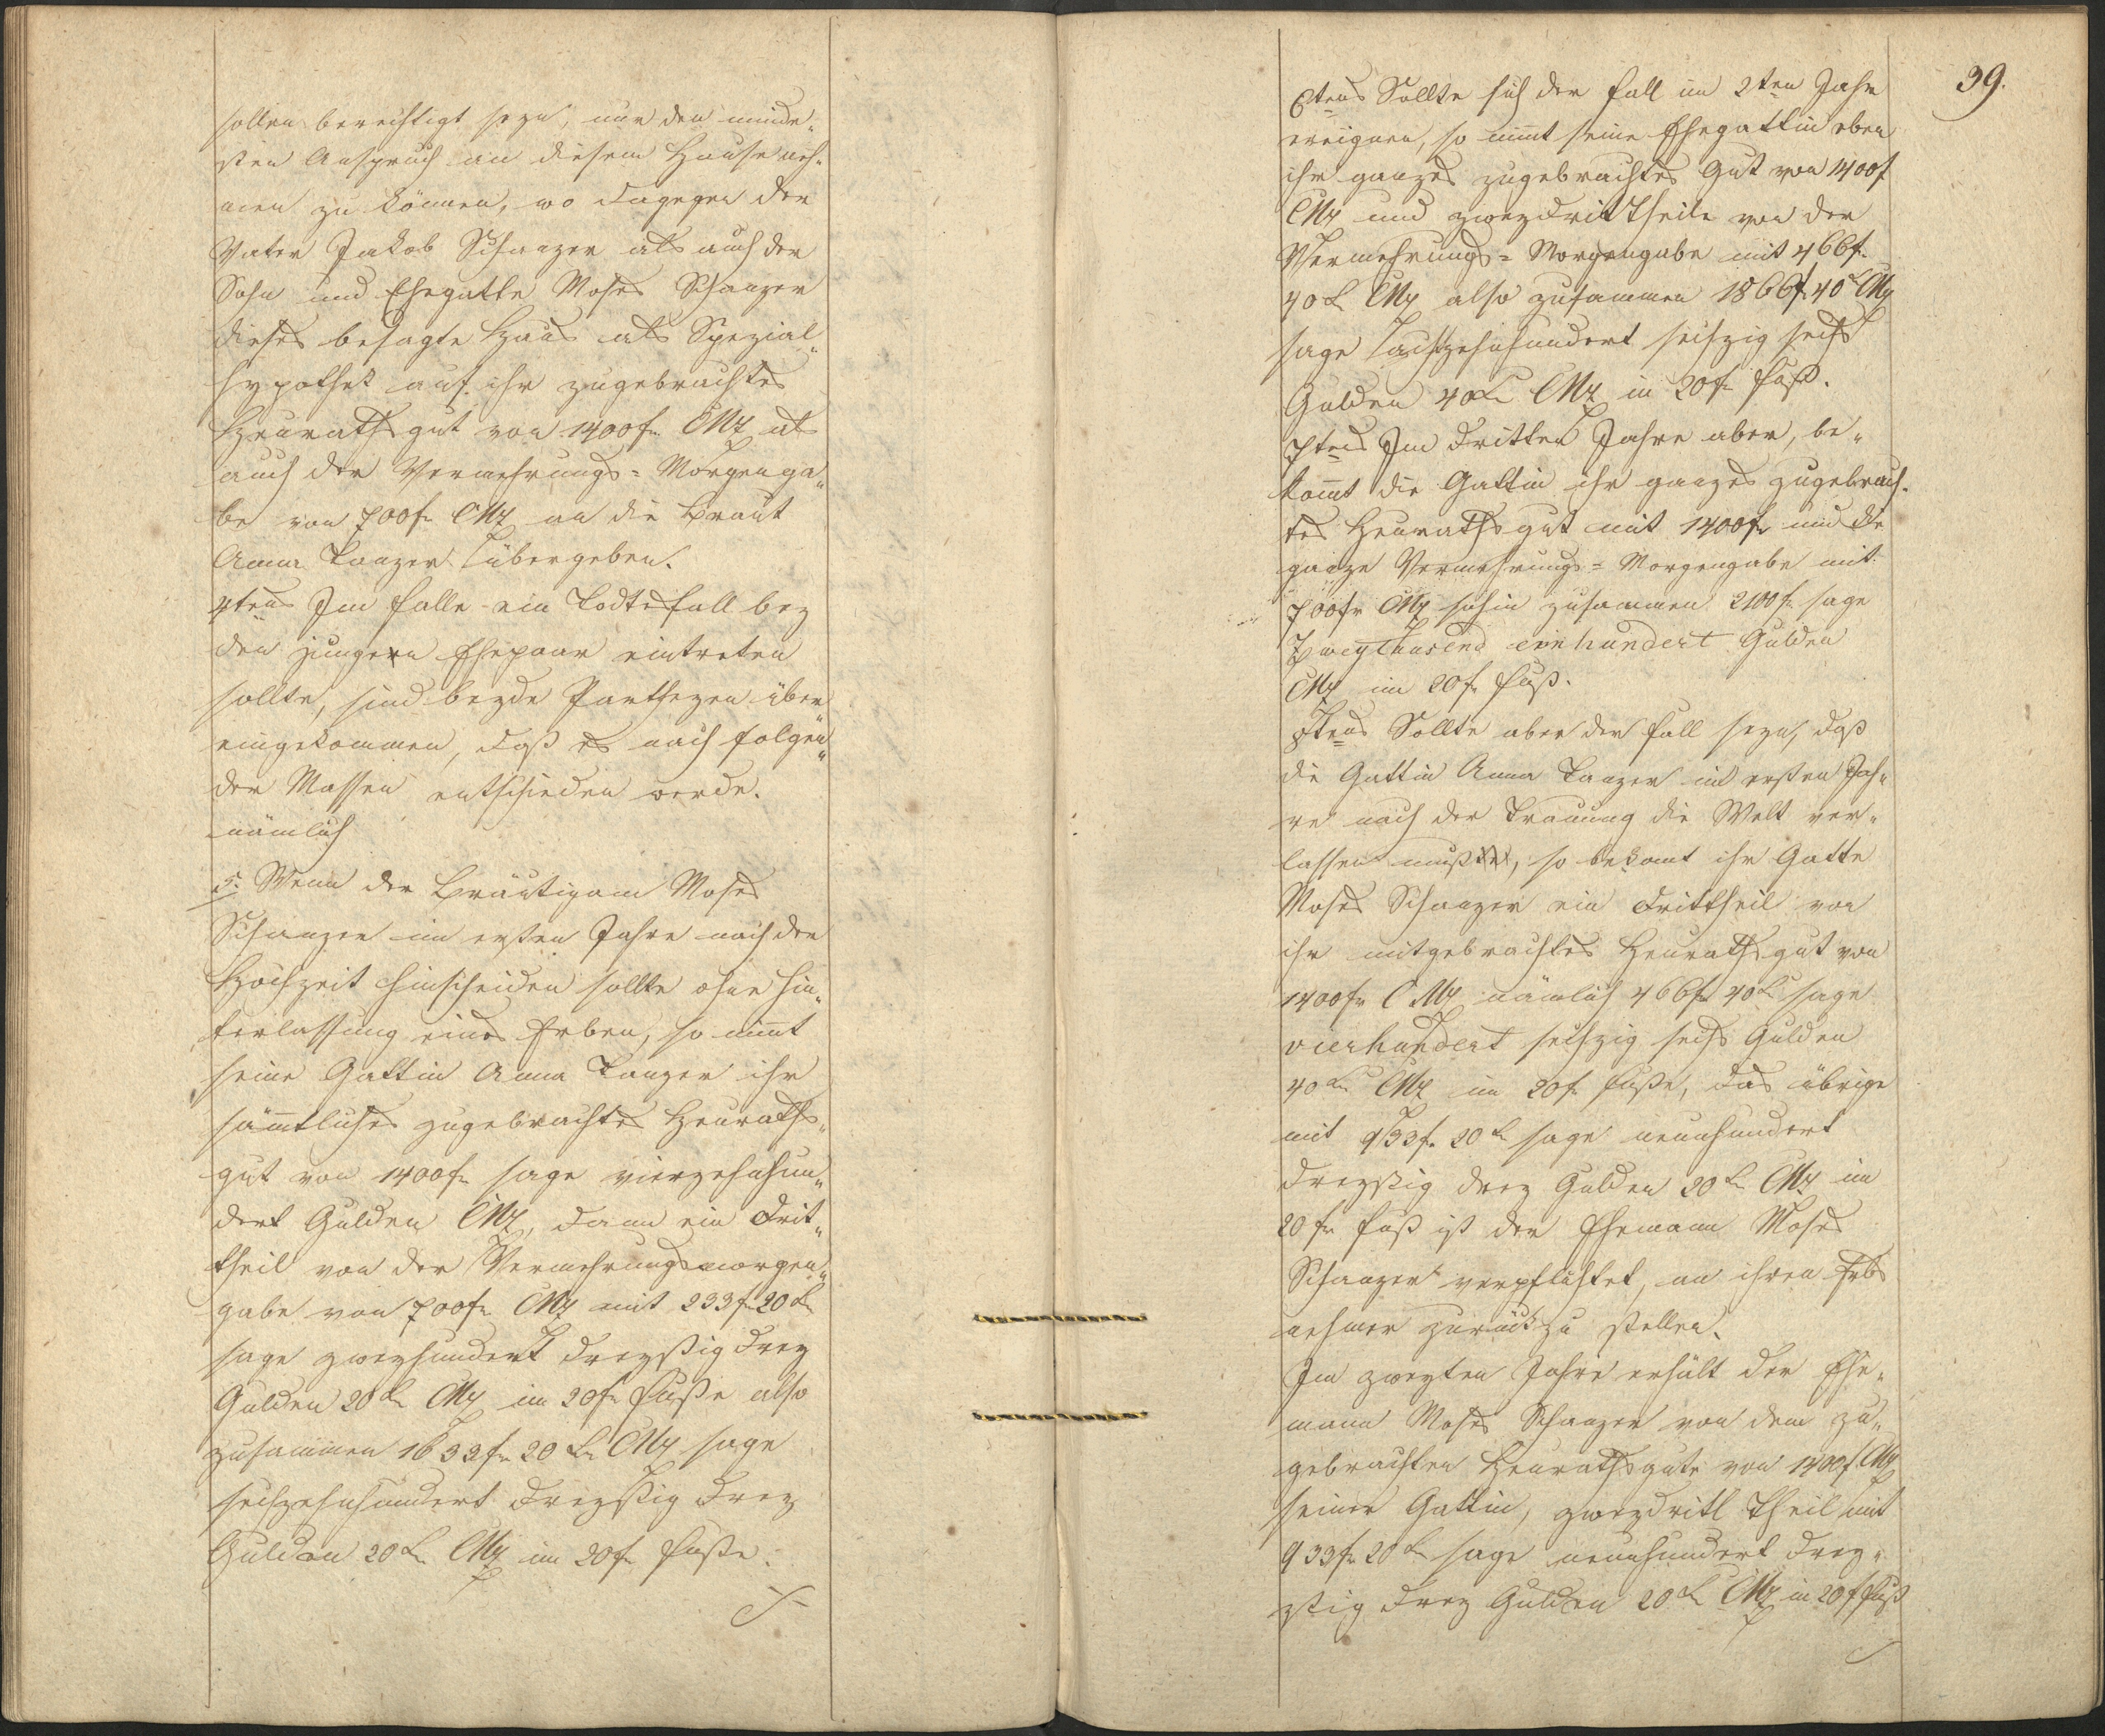 sollen berechtigt seyn, nur den minde„
sten Anspruch an diesem Hause neh„
men zu können, wo dagegen der
Vater Jakob Schanzer als auch der
Sohn und Ehegatte Moses Schanzer
dieses besagte Haus als Spezial„
hypothek auf ihr zugebrachtes
Heurathsgut von 1400 fr CMz als
auch der Vermehrungs=Morgenga„
be von 700 fr CMz an die Braut
Anna Tanzer übergeben.
4tens Im Falle ein Todtesfall bey
den jungen Ehepaar eintreten
sollte, sind beyde Partheyen über„
eingekommen, daß es nach folgen„
der Massen entschieden werde.
nämlich
5. Wenn der Bräutigam Moses
Schanzer im ersten Jahre nach der
Hochzeit hinscheiden sollte ohne Hin„
terlassung eines Erben, so nim̄t
seine Gattin Anna Tanzer ihr
säm̄tliches zugebrachtes Heuraths„
gut von 1400 fr sage vierzehnhun„
dert Gulden CMz, dann ein Drit„
theil von der Vermehrungsmorgen„
gabe von 700 fr CMz mit 233 fr 20 kr
sage zweyhundert dreyßig drey
Gulden 20 kr CMz im 20 fr Fuße also
zusammen 1633 fr 20 kr CMz sage
sechzehnhundert dreyßig drey
Gulden 20 kr CMz im 20 fr Fuße.
39.
6tens Sollte sich der Fall im 2ten Jahre
ereignen, so nim̄t seine Ehegattin eben
ihr ganzes zugebrachtes Gut von 1400 f
CMz und zweydrittheile von der
Vermehrungs=Morgengabe mit 466 f.
40 k CMz also zusammen 1866 f 40 k CMz
sage achtzehnhundert sechzig sechs
Gulden 40 kr CMz in 20 fr Fuß.
7tens Im dritten Jahre aber, be„
kom̄t die Gattin ihr ganzes zugebrach„
tes Heurathsgut mit 1400 fr und die
ganze Vermehrungs=Morgengabe mit
700 fr CMz sohin zusammen 2100 fr sage
Zweytausend einhundert Gulden
CMz im 20 fr Fuß.
8tens Sollte aber der Fall seyn, daß
die Gattin Anna Tanzer im ersten Jah„
re nach der Trauung die Welt ver„
lassen muß, so bekomt ihr Gatte
Moses Schanzer ein Drittheil von
ihr mitgebrachtes Heurathsgut von
1400 fr CMz nämlich 466 fr 40 kr sage
vierhundert sechzig sechs Gulden
40 kr CMz im 20 f. Fuße, das übrige
mit 933 f. 20 kr sage neunhundert
dreyßig drey Gulden 20 kr CMz im
20 fr Fuß ist der Ehemann Moses
Schanzer verpflichtet, an ihren Erbs
nehmer zurückzu stellen.
Im zweyten Jahre erhält der Ehe„
mann Moses Schanzer von dem zu„
gebrachten Heurathsgute von 1400 f CMz
seiner Gattin, zweydritt Theil mit
933 fr 20 kr sage neunhundert drey„
ßig drey Gulden 20 kr CMz in 20 f Fuß